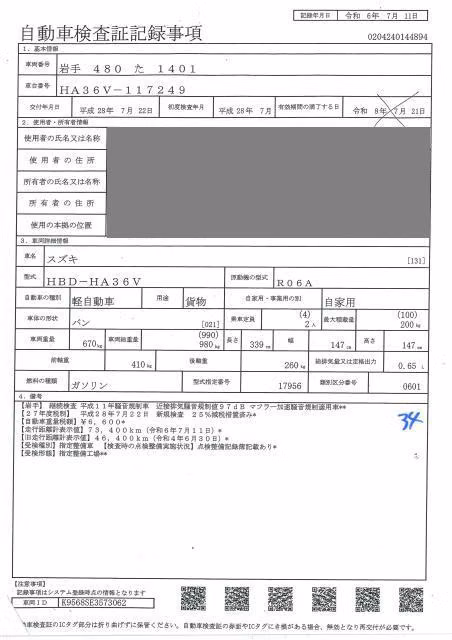 記録年月日 令和 6年 7月 11日
自動車検査証記録事項
0204240144894
1. 基本情報
車両番号 岩手 480 た 1401
車台番号 HA36V-117249
交付年月日 平成 28年 7月 22日 初度検査年月 平成 28年 7月 有効期間の満了する日 令和 8年 7月 21日
2. 使用者・所有者情報
使用者の氏名又は名称
使用者の住所
所有者の氏名又は名称
所有者の住所
使用の本拠の位置
3. 車両詳細情報
車名 スズキ [131]
型式 HBD-HA36V 原動機の型式 R06A
自動車の種別 軽自動車 用途 貨物 自家用・事業用の別 自家用
車体の形状 バン [021] 乗車定員 (4) 2人 最大積載量 (100) 200kg
車両重量 670kg 車両総重量 (990) 980kg 長さ 339cm 幅 147cm 高さ 147cm
前軸重 410kg 後軸重 260kg 総排気量又は定格出力 0.65 L
燃料の種類 ガソリン 型式指定番号 17956 類別区分番号 0601
4. 備考
【岩手】 継続検査 平成11年騒音規制車 近接排気騒音規制値97dB マフラー加速騒音規制適用車**
【27年度税制】 平成28年7月22日 新規検査 25%減税措置済み*
【自動車重量税額】 ¥6,600*
【走行距離計表示値】 73,400km (令和6年7月11日)*
【旧走行距離計表示値】 46,400km (令和4年6月30日)*
【受検種別】 指定整備車 【検査時の点検整備実施状況】 点検整備記録簿記載あり*
【受検形態】 指定整備工場**
34
【注意事項】
記録事項はシステム登録時点の情報となります
車両ID K9568SE3573062
車検査証のICタグ部分は折り曲げずに保管ください。自動車検査証の券面やICタグに き損がある場合、無効となり再交付が必要です。